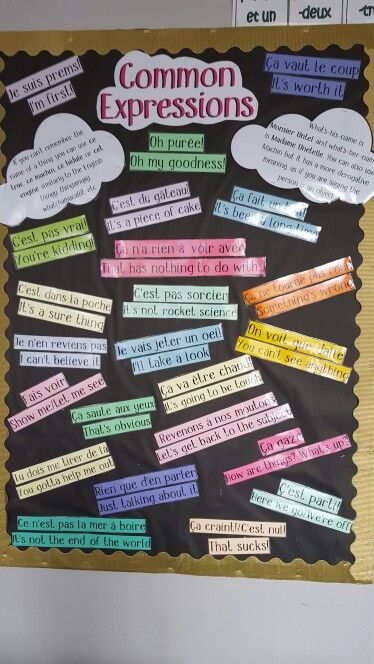 et un
-deux
Je suis prems!
I'm first!
Common
Expressions
Ça vaut le coup
It's worth it
If you can't remember the
name of a thing you can use ce
truc, ce machin, ce bidule or cet
engin similarly to the English
thingy, thingamajig,
whatchamacallit, etc.
Oh purée!
Oh my goodness!
What's-his-name is
Monsier Untel and what's-her-name
is Madame Unetelle. You can also use
Machin but it has a more
meaning, as if you are saying the
person is an object
C'est du gâteau!
It's a piece of cake
Ça fait un bail
It's been a long time
C'est pas vrai!
You're kidding!
Ça n'a rien à voir avec
That has nothing to do with...
C'est dans la poche
It's a sure thing
C'est pas sorcier
It's not rocket science
Ça ne tourne pas rond
Something's wrong
Je n'en reviens pas
I can't believe it
Je vais jeter un oeil
I'll take a look
On voit que dalle
You can't see anything
Fais voir
Show me/let me see
Ça va être chaud
It's going to be tough
Ça saute aux yeux
That's obvious
Revenons à nos moutons
Let's get back to the subject
Ça gaz
How are things? What's up?
Tu dois me tirer de là
You gotta help me out
Rien que d'en parler
Just talking about it
C'est parti!
Here we go/We're off
Ce n'est pas la mer à boire
It's not the end of the world
Ça craint!/C'est nul!
That sucks!